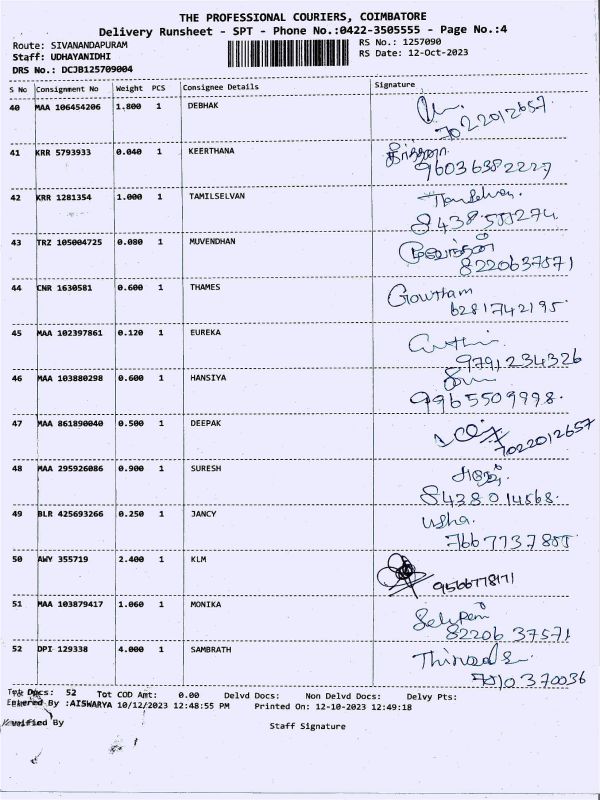 THE PROFESSIONAL COURIERS, COIMBATORE
Delivery Runsheet - SPT - Phone No.:0422-3505555 - Page No.:4
Route: SIVANANDAPURAM RS No.: 1257090
Staff: UDHAYANIDHI RS Date: 12-Oct-2023
DRS No.: DCJB125709004
S No Consignment No Weight PCS Consignee Details Signature
40 MAA 106454206 1.800 1 DEBHAK
7022012657
41 KRR 5793933 0.040 1 KEERTHANA கீர்த்தனா
96036382227
42 KRR 1281354 1.000 1 TAMILSELVAN
8438555274
43 TRZ 105004725 0.080 1 MUVENDHAN மூவேந்தன்
8220637571
44 CNR 1630581 0.600 1 THAMES Gowtham
6281742195.
45 MAA 102397861 0.120 1 EUREKA
9791234326
46 MAA 103880298 0.600 1 HANSIYA
9965509998.
47 MAA 861890040 0.500 1 DEEPAK
7022012657
48 MAA 295926086 0.900 1 SURESH
8438014568.
49 BLR 425693266 0.250 1 JANCY usha.
7667737855
50 AWY 355719 2.400 1 KLM
9566778171
51 MAA 103879417 1.060 1 MONIKA
8220637571
52 DPI 129338 4.000 1 SAMBRATH
7010370036
Tot Docs: 52 Tot COD Amt: 0.00 Delvd Docs: Non Delvd Docs: Delvy Pts:
Entered By :AISWARYA 10/12/2023 12:48:55 PM Printed On: 12-10-2023 12:49:18
Verified By
Staff Signature